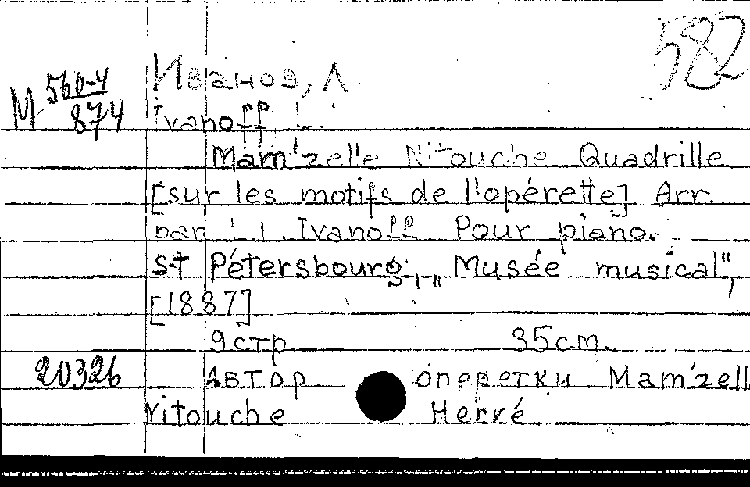 582
М 560-4/874
Иванов, Л
Ivanoff, L.
Mam'zelle Nitouche Quadrille
[sur les motifs de l'opérette] Arr.
par L. Ivanoff Pour piano.
St Pétersbourg, „Musée musical",
[1887]
9 стр 35 cm.
20326 Автор оперетки Mam'zell
Nitouche Hervé